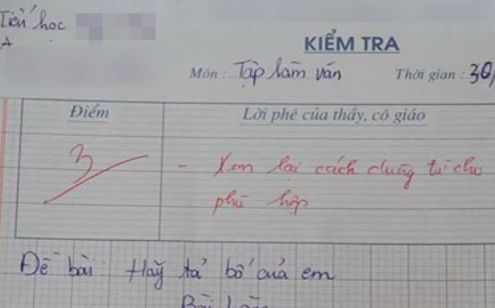 Tiểu học
A
KIỂM TRA
Môn : Tập làm văn Thời gian : 30
Điểm Lời phê của thầy, cô giáo
3
- Xem lại cách dùng từ cho
phù hợp
Đề bài: Hãy tả bố của em
Bài làm